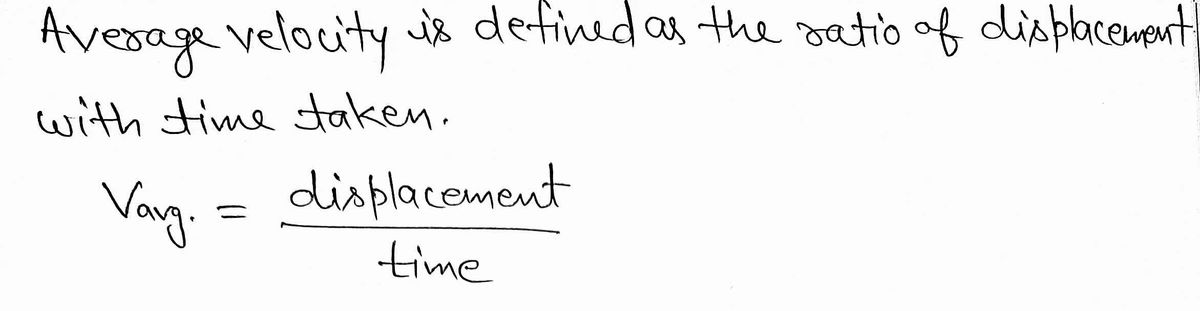 Average velocity is defined as the ratio of displacement
with time taken.
Vavg. = displacement
time